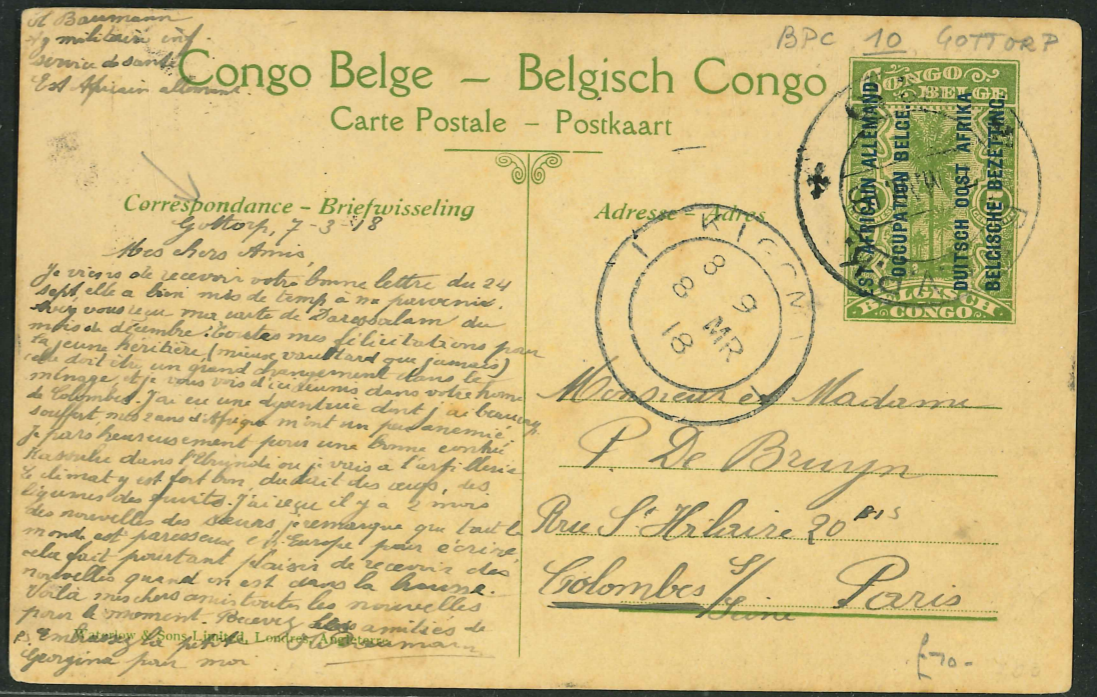 A Baumann
Ag militaire inf.
Service de santé
Est Africain allemand.
BPC 10 GOTTORP
Congo Belge – Belgisch Congo
Carte Postale – Postkaart
CONGO
BELGE
EST AFRICAIN ALLEMAND
OCCUPATION BELGE.
DUITSCH OOST AFRIKA
BELGISCHE BEZETTING.
BELGISCH
CONGO
Correspondance – Briefwisseling
Adresse – Adres
KIGOMA
8
8
9
MR
18
Gottorp, 7-3-18
Mes chers Amis
Je viens de recevoir votre bonne lettre du 24
Sept, elle a bien mis de temp à me parvenir.
Avez vous reçu ma carte de Daressalam du
mois de décembre. Toutes mes félicitations pour
la jeune héritière (mieux vaut tard que jamais)
cela doit être un grand changement dans le
ménage, et je vous vois d'ici réunis dans votre home
de Colombes. J'ai eu une dysenterie dont j'ai beaucoup
souffert, mes 2 ans d'Afrique m'ont un peu anémié
Je pars heureusement pour une bonne contrée
dans l'Urundi ou je vais à l'artillerie
Le climat y est fort bon, du lait des œufs, des
légumes des fruits. J'ai reçu il y a 2 mois
des nouvelles des sœurs, je remarque que tout le
monde est paresseux en Europe pour écrire
cela fait pourtant plaisir de recevoir des
nouvelles quand on est dans la brousse.
Voilà mes chers amis toutes les nouvelles
pour le moment. Recevez les amitiés de
Waterlow & Sons Limited, Londres, Angleterre.
Embrassez la petite Baumann
Georgina pour moi
Monsieur et Madame
P. De Bruyn
Rue St Hilaire 20 BIS
Colombes s/Seine Paris
£70-